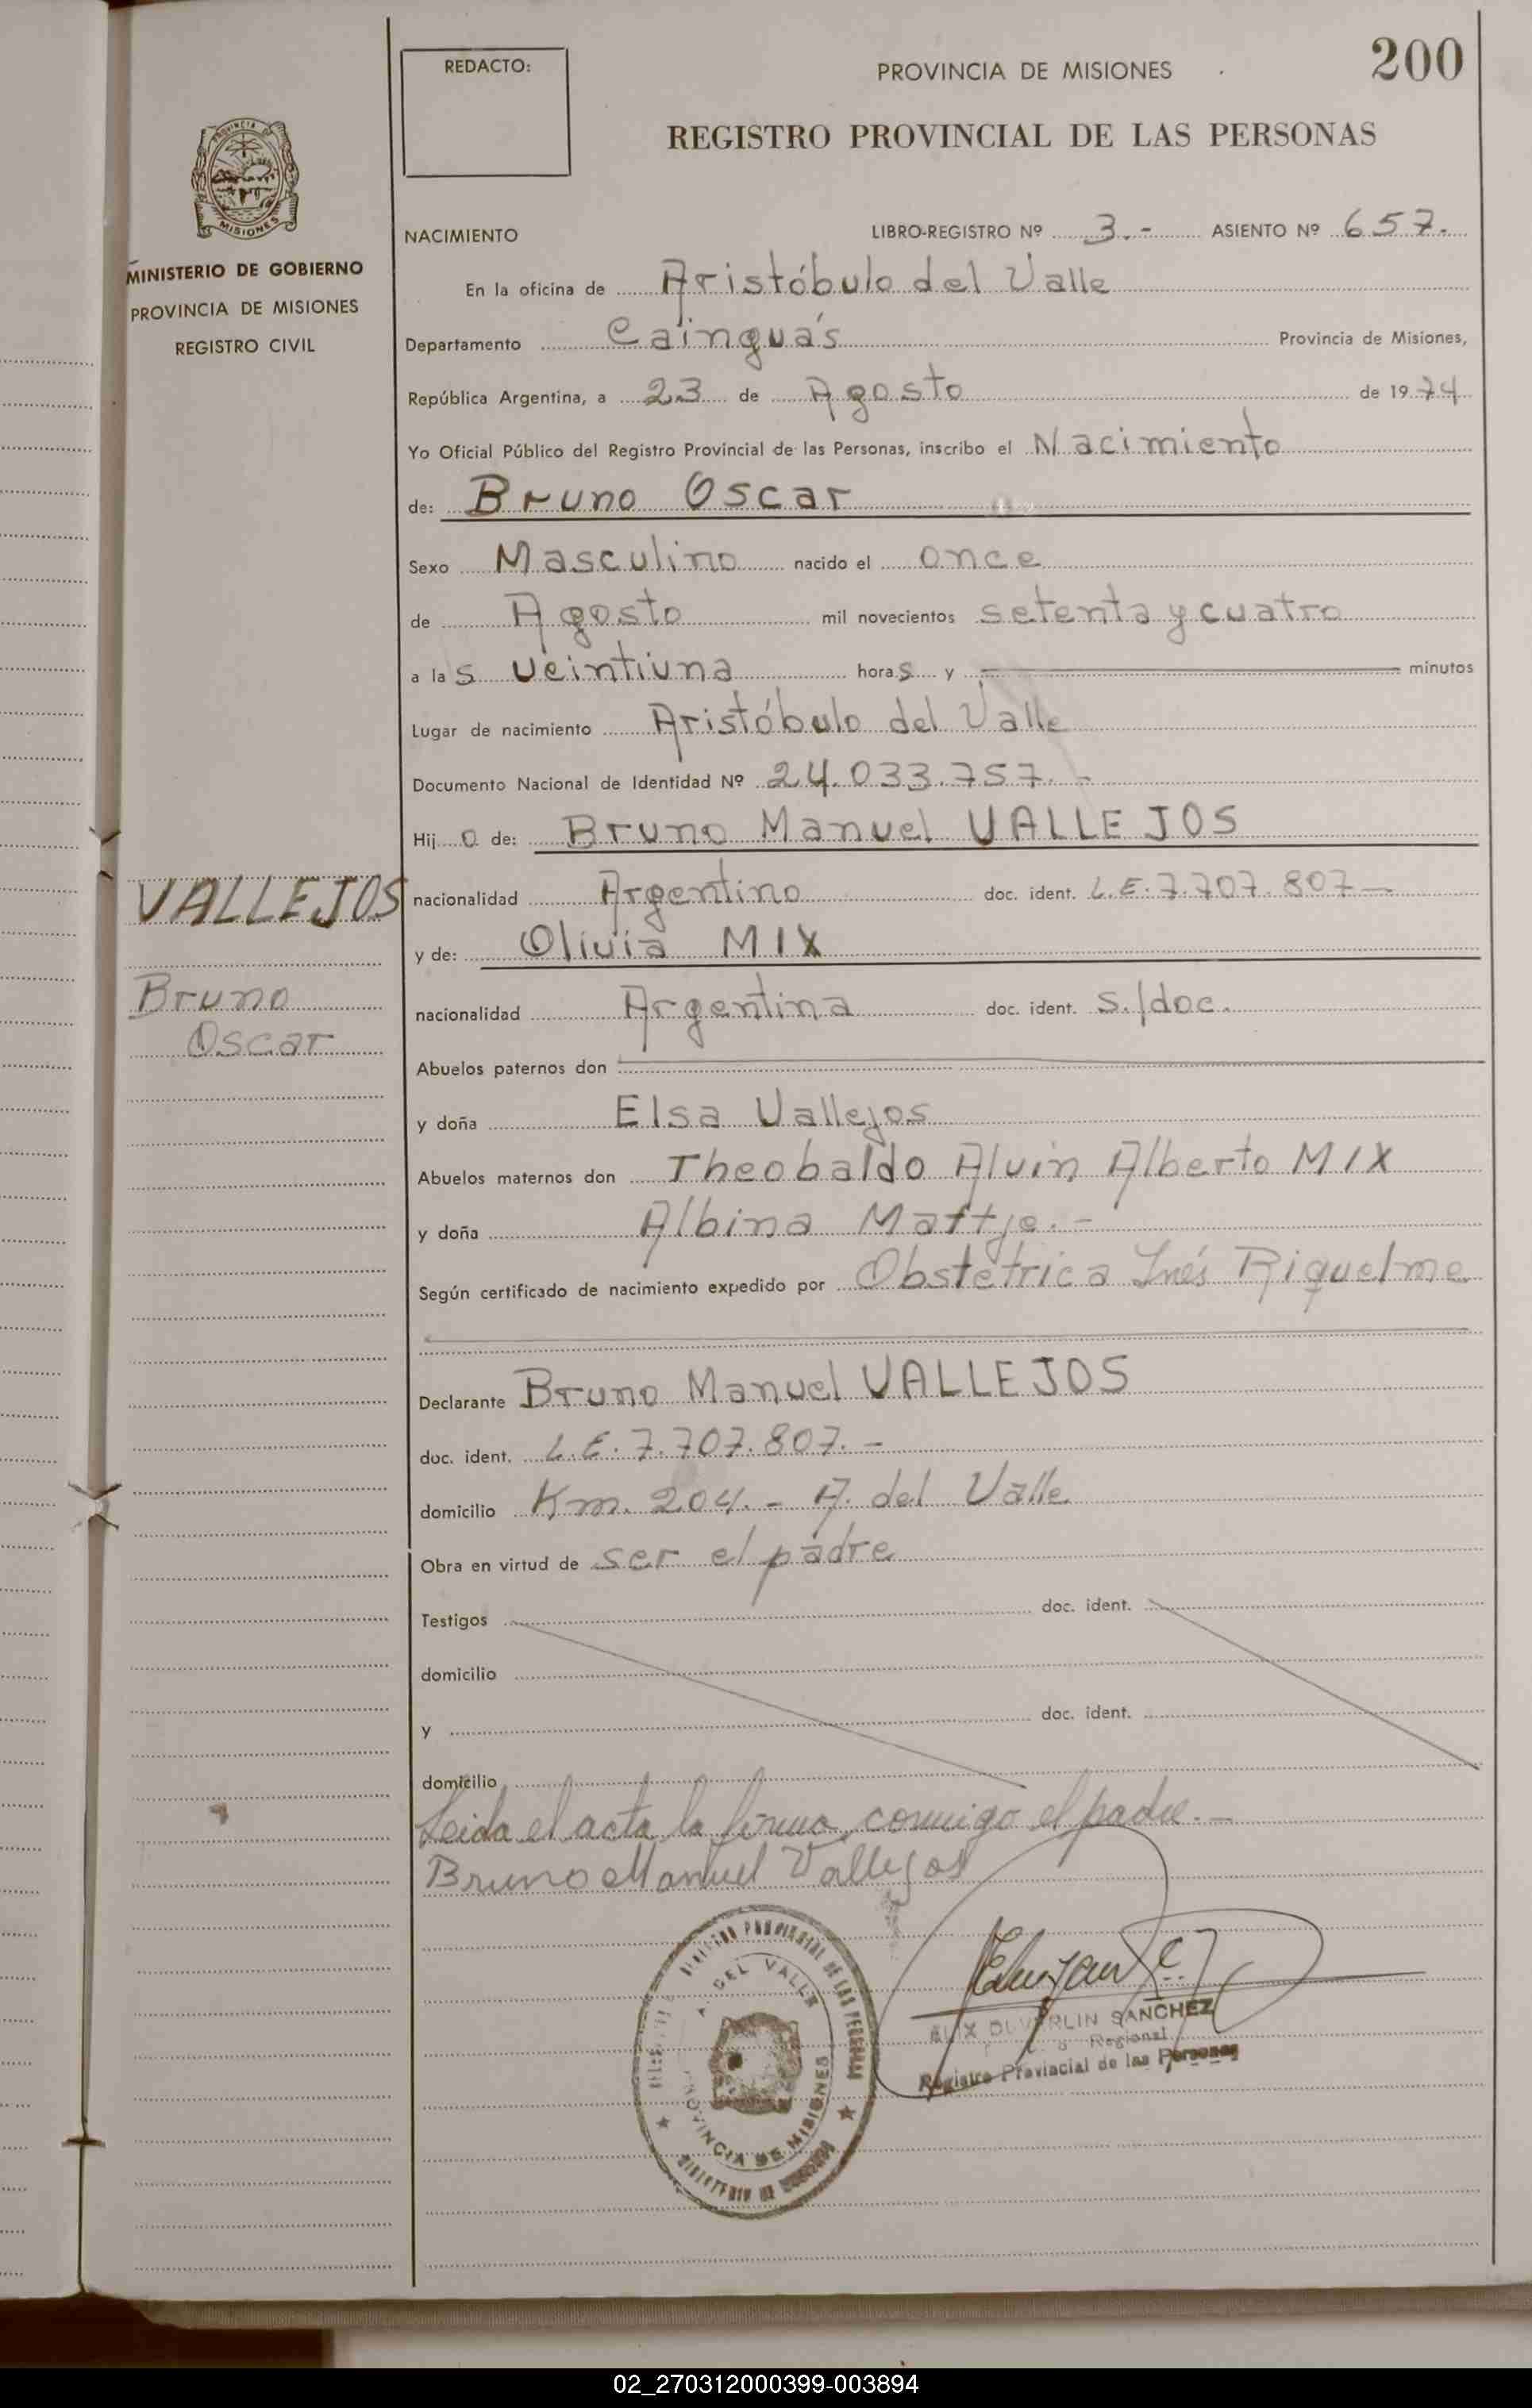 REDACTO:
PROVINCIA DE MISIONES
200
REGISTRO PROVINCIAL DE LAS PERSONAS
PROVINCIA DE
MISIONES
MINISTERIO DE GOBIERNO
PROVINCIA DE MISIONES
REGISTRO CIVIL
NACIMIENTO
LIBRO-REGISTRO Nº 3.- ASIENTO Nº 657.
En la oficina de Aristóbulo del Valle
Departamento Cainguás Provincia de Misiones,
República Argentina, a 23 de Agosto de 1974
Yo Oficial Público del Registro Provincial de las Personas, inscribo el Nacimiento
de: Bruno Oscar
Sexo Masculino nacido el once
de Agosto mil novecientos setenta y cuatro
a las veintiuna horas y minutos
Lugar de nacimiento Aristóbulo del Valle
Documento Nacional de Identidad Nº 24.033.757.-
Hijo de: Bruno Manuel VALLEJOS
VALLEJOS
nacionalidad Argentino doc. ident. L.E. 7.707.807-
y de: Olivia MIX
Bruno
Oscar
nacionalidad Argentina doc. ident. s./doc.
Abuelos paternos don
y doña Elsa Vallejos
Abuelos maternos don Theobaldo Alvin Alberto MIX
y doña Albina Mattje.-
Según certificado de nacimiento expedido por Obstétrica Inés Riquelme
Declarante Bruno Manuel VALLEJOS
doc. ident. L.E. 7.707.807.-
domicilio Km. 204.- A. del Valle
Obra en virtud de ser el padre
Testigos doc. ident.
domicilio
y doc. ident.
domicilio
Leida el acta la firma conmigo el padre.-
Bruno Manuel Vallejos
PROVINCIAL DE LAS PERSONAS
A. DEL VALLE
PROVINCIA DE MISIONES
MINISTERIO DE GOBIERNO
SANCHEZ
Regional
Registro Provincial de las Personas
02_270312000399-003894